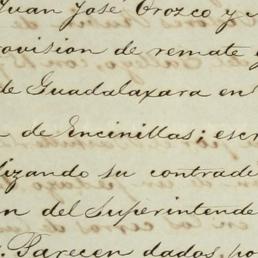 Juan José Orozco y
provision de remate
de Guadalaxara en
de Encinillas; escr
lizando su contradi
n del Superintende
Parecen dados, po